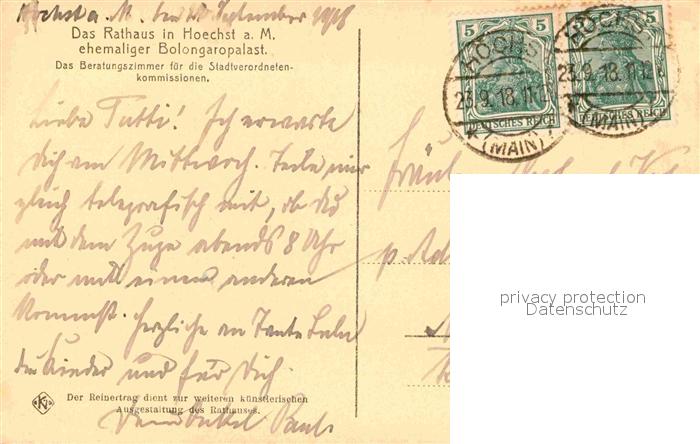 Höchst a. M. den 22 September 1918
Das Rathaus in Hoechst a. M.
ehemaliger Bolongaropalast.
Das Beratungszimmer für die Stadtverordneten-
kommissionen.
Liebe Tutti! Ich erwarte
Dich am Mittwoch. Teile mir
gleich telegrafisch mit, ob du
mit dem Zuge abends 8 Uhr
oder mit einem anderen
kommst. Herzliche an Tante
die Kinder und für Dich
Dein Onkel Paul.
Der Reinertrag dient zur weiteren künstlerischen
Ausgestaltung des Rathauses.
5 5 5 5
HÖCHST
23.9.18.11-12
(MAIN)
DEUTSCHES REICH
HÖCHST
23.9.18.11-12
(MAIN)
DEUTSCHES REICH
Fräul
p. Ad
privacy protection
Datenschutz